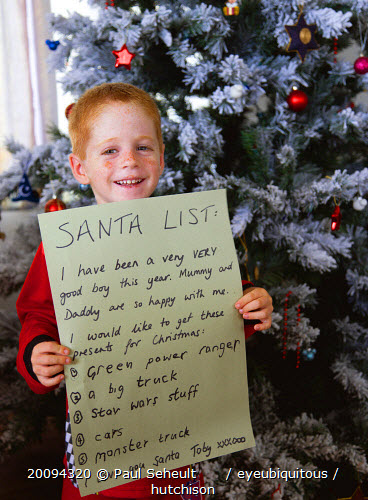 SANTA LIST:
I have been a very VERY
good boy this year. Mummy and
Daddy are so happy with me..
I would like to get these
presents for Christmas:
① Green power ranger
② a big truck
③ Star wars stuff
④ cars
⑤ monster truck
Santa Toby xxxooo
20094320 © Paul Seheult / eyeubiquitous /
hutchison